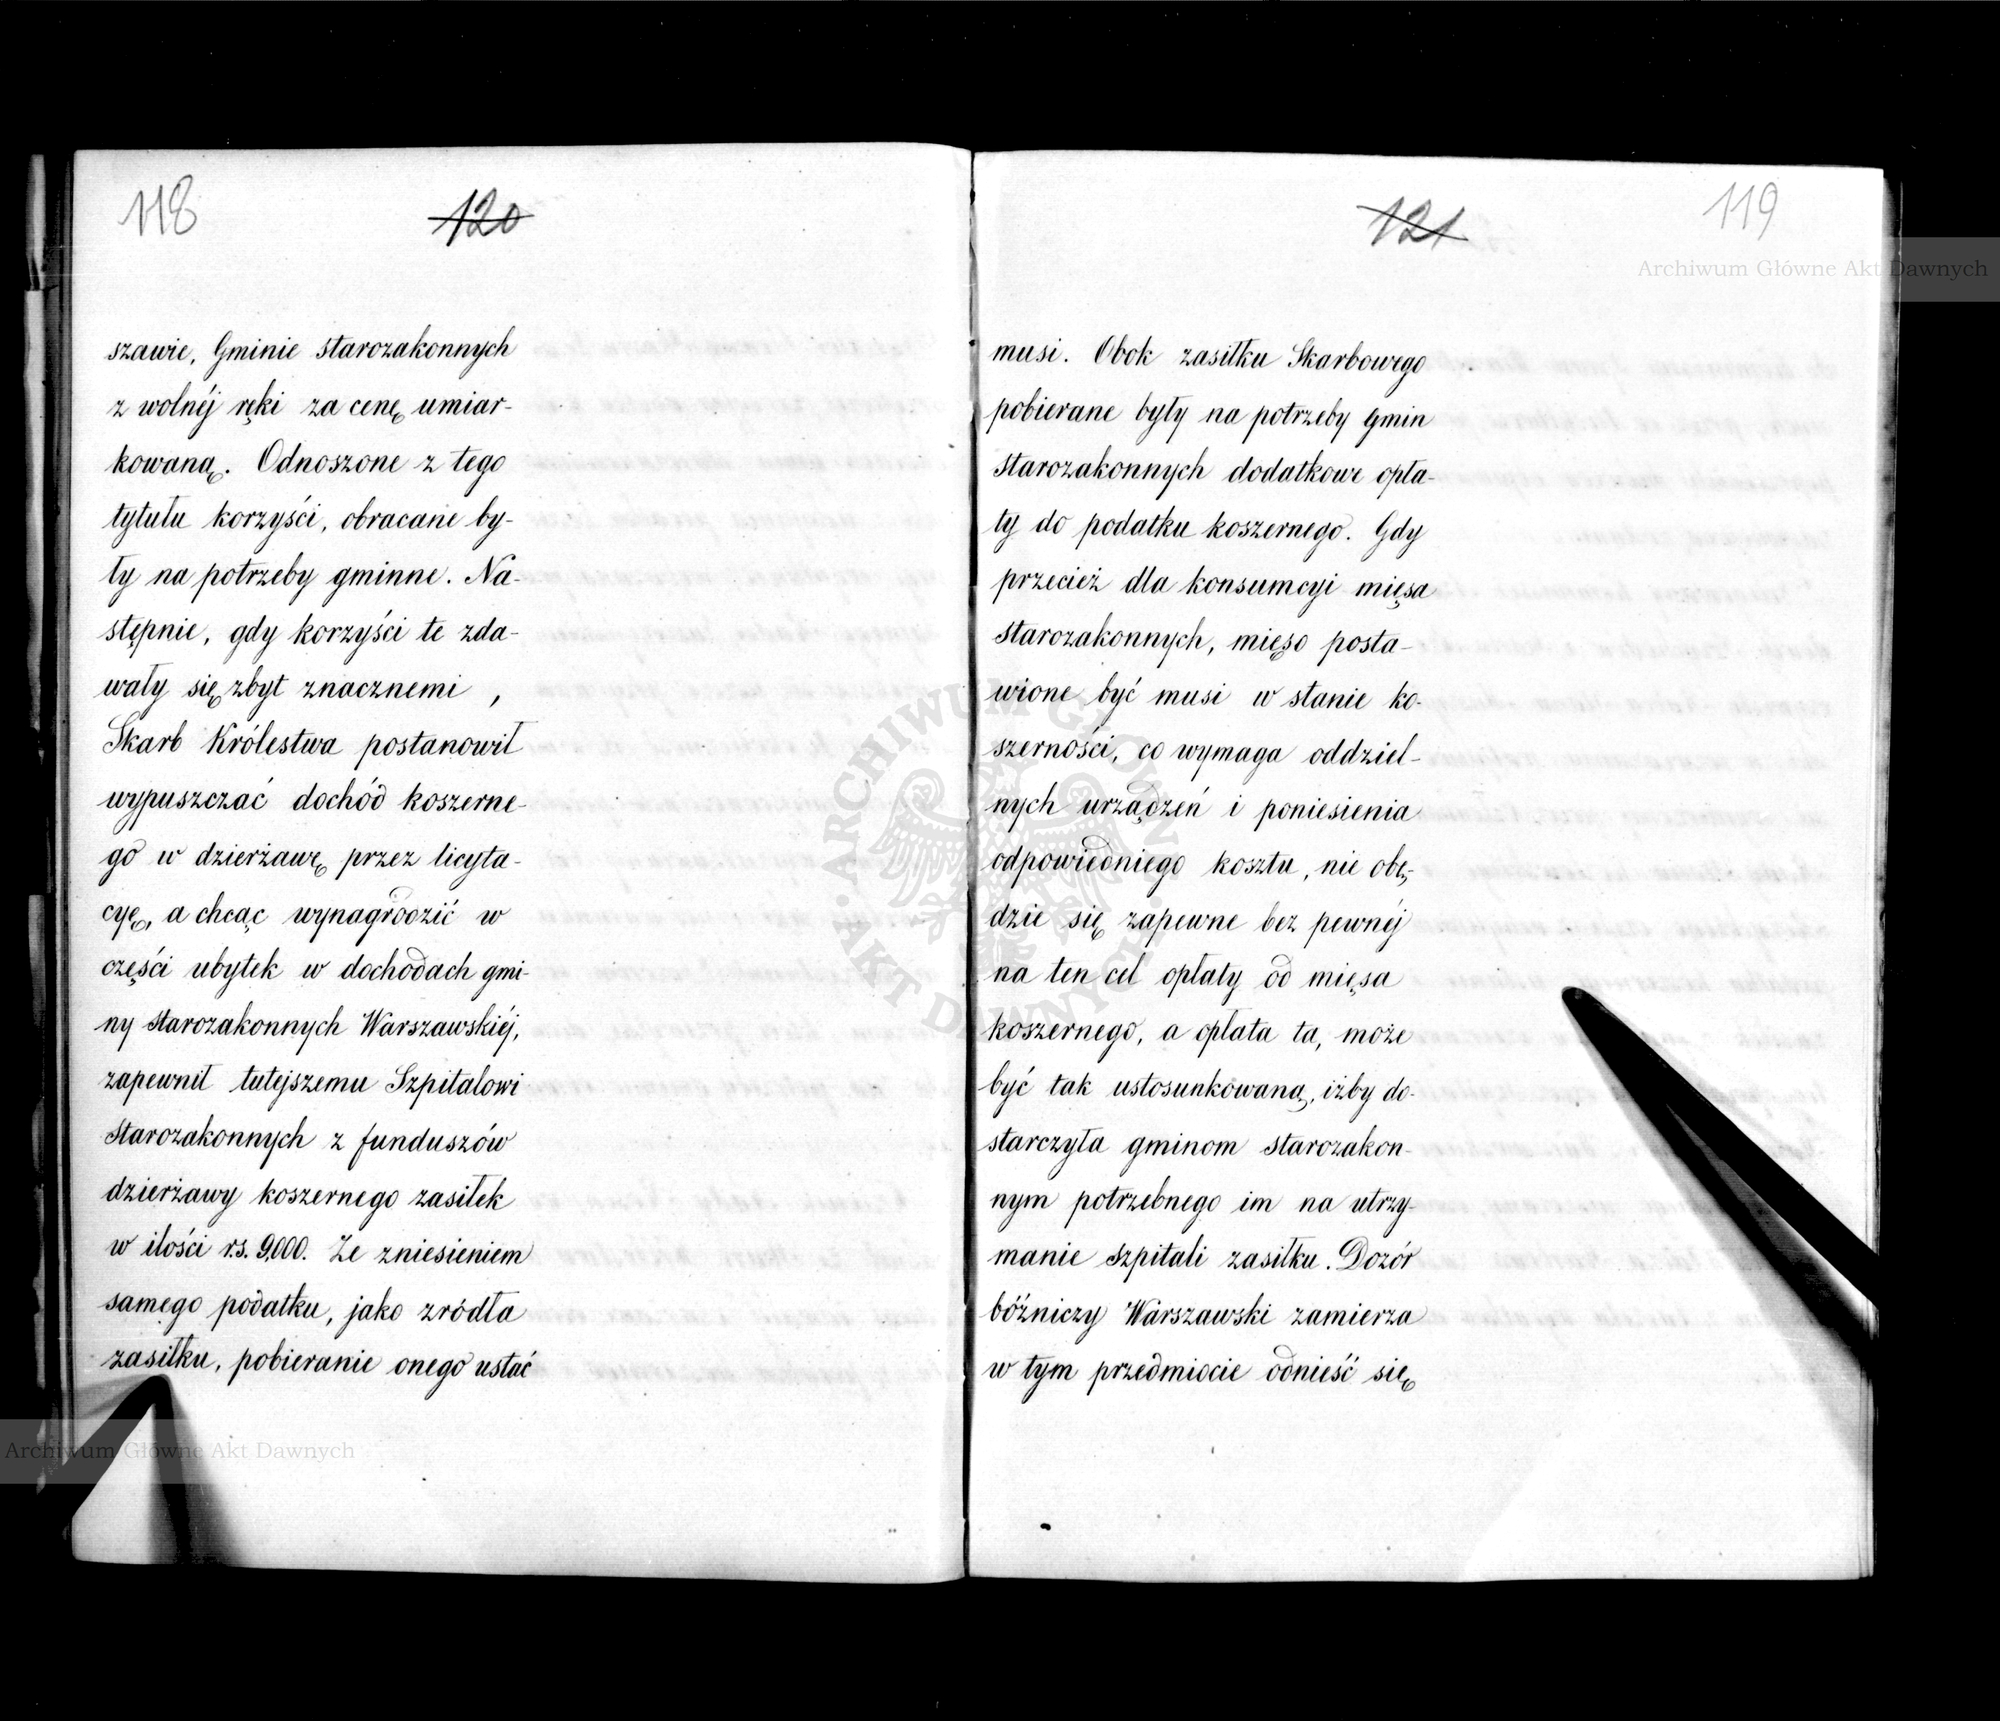 118
120
szawie, Gminie starozakonnych
z wolnéj ręki za cenę umiar-
kowaną. Odnoszone z tego
tytułu korzyści, obracane by-
ły na potrzeby gminne. Na-
stępnie, gdy korzyści te zda-
wały się zbyt znacznemi ,
Skarb Królestwa postanowił
wypuszczać dochód koszerne-
go w dzierżawę przez licyta-
cyę, a chcąc wynagrodzić w
części ubytek w dochodach gmi-
ny starozakonnych Warszawskiéj,
zapewnił tutejszemu Szpitalowi
starozakonnych z funduszów
dzierżawy koszernego zasiłek
w ilości rs. 9,000. Ze zniesieniem
samego podatku, jako zródła
zasiłku, pobieranie onego ustać
121
119
Archiwum Główne Akt Dawnych
musi. Obok zasiłku Skarbowego
pobierane były na potrzeby gmin
starozakonnych dodatkowe opła-
ty do podatku koszernego. Gdy
przecież dla konsumcyi mięsa
starozakonnych, mięso posta-
wione być musi w stanie ko-
szerności, co wymaga oddziel-
nych urządzeń i poniesienia
odpowiedniego kosztu, nie obę-
dzie się zapewne bez pewnéj
na ten cel opłaty od mięsa
koszernego, a opłata ta, może
być tak ustosunkowaną, iżby do-
starczyła gminom starozakon-
nym potrzebnego im na utrzy-
manie szpitali zasiłku. Dozór
bóżniczy Warszawski zamierza
w tym przedmiocie odnieść się
ARCHIWUM GŁÓWNE
AKT DAWNYCH
Archiwum Główne Akt Dawnych